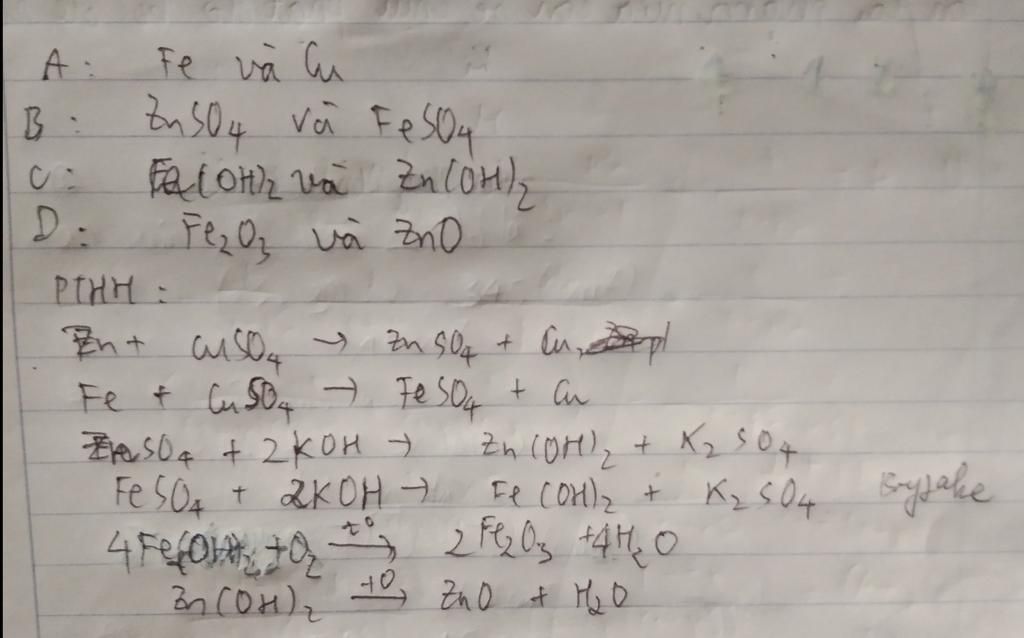 A: Fe và Cu
B: ZnSO₄ và FeSO₄
C: Fe(OH)₂ và Zn(OH)₂
D: Fe₂O₃ và ZnO
PTHH:
Zn + CuSO₄ → ZnSO₄ + Cu
Fe + CuSO₄ → FeSO₄ + Cu
ZnSO₄ + 2KOH → Zn(OH)₂ + K₂SO₄
FeSO₄ + 2KOH → Fe(OH)₂ + K₂SO₄
4Fe(OH)₂ + O₂ →(t°) 2Fe₂O₃ + 4H₂O
Zn(OH)₂ →(t°) ZnO + H₂O